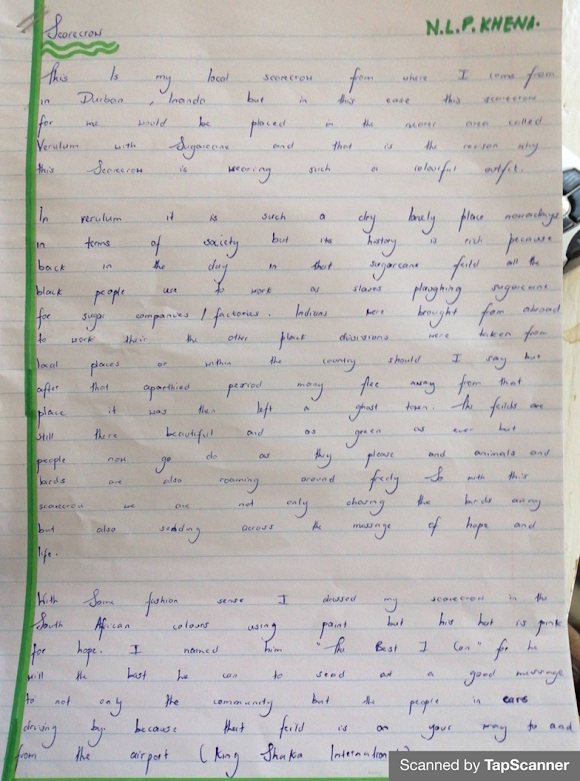 Scarecrow
N.L.P. KHENA.
This Is my local scarecrow from where I come from
in Durban , Inanda but in this case this scarecrow
for me would be placed in the nearer area called
Verulum with Sugarcane and that is the reason why
this Scarecrow is wearing such a colourful outfit.
In verulum it is such a dry lonely place nowadays
in terms of society but its history is rich because
back in the day in that sugarcane feild all the
black people use to work as slaves ploughing sugarcane
for sugar companies / factories. Indians were brought from abroad
to work their the other black divisions were taken from
local places or within the country should I say but
after that aparthied period many flee away from that
place it was then left a ghost town. The feilds are
still there beautiful and as green as ever but
people now go do as they please and animals and
birds are also roaming around freely So with this
scarecrow we are not only chasing the birds away
but also sending across the message of hope and
life.
With Some fashion sense I dressed my scarecrow in the
South African colours using paint but his hat is pink
for hope. I named him "The Best I Can" for he
will the best he can to send out a good message
to not only the community but the people in cars
driving by because that feild is on your way to and
from the airport (King Shaka International)
Scanned by TapScanner